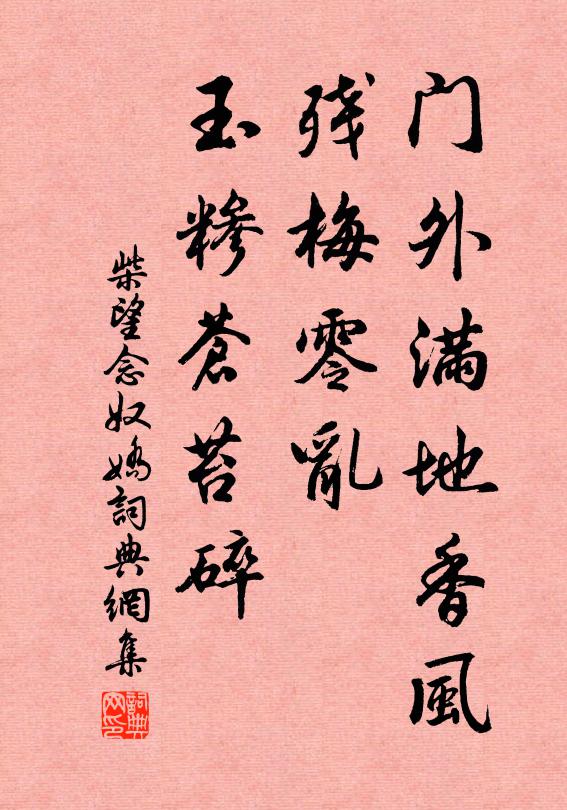 门外满地香風
残梅零亂
玉糝蒼苔碎
柴望念奴嬌詞典網集
詞典网印